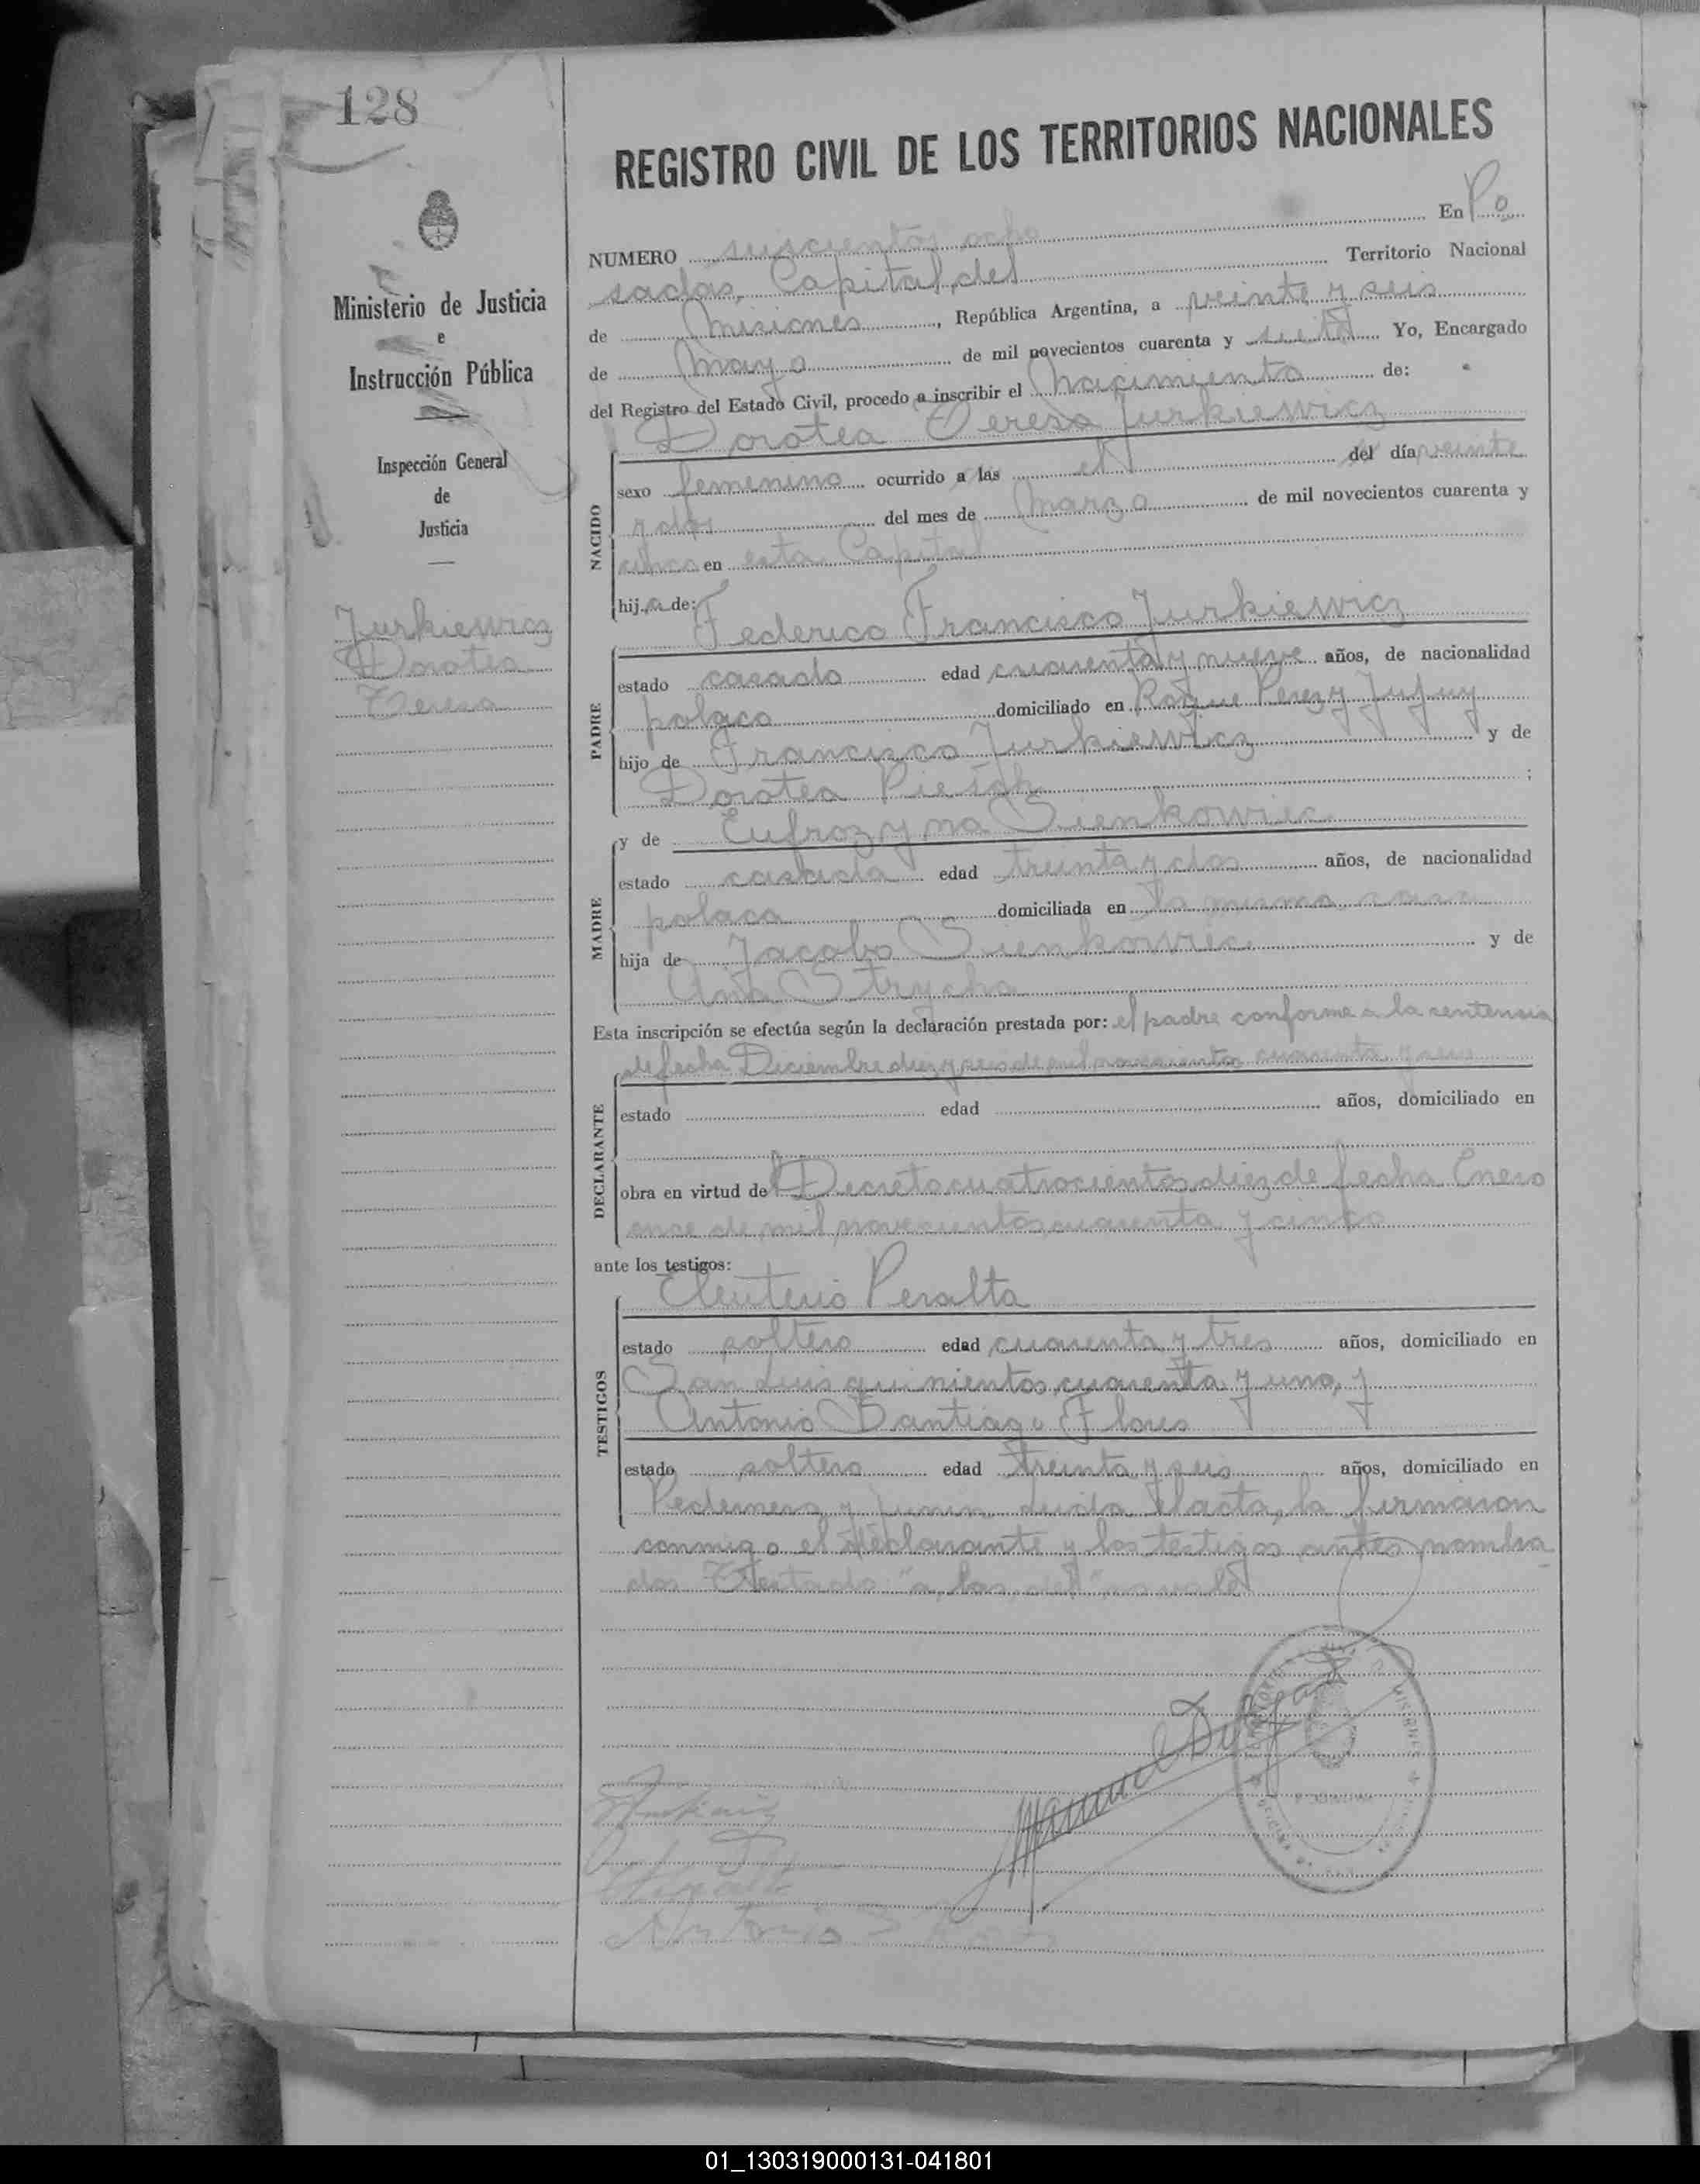 128
REGISTRO CIVIL DE LOS TERRITORIOS NACIONALES
Ministerio de Justicia
e
Instrucción Pública
Inspección General
de
Justicia
Jurkiewicz
Dorotea
Teresa
NUMERO ocho En Po
sadas, Capital del Territorio Nacional
de Misiones, República Argentina, a veinte y seis
de Mayo de mil novecientos cuarenta y siete Yo, Encargado
del Registro del Estado Civil, procedo a inscribir el Nacimiento de:
Dorotea Teresa Jurkiewicz
NACIDO
sexo femenino ocurrido a las el del día veinte
y dos del mes de Marzo de mil novecientos cuarenta y
cinco en esta Capital
hija de:
Federico Francisco Jurkiewicz
PADRE
estado casado edad cuarenta y nueve años, de nacionalidad
polaco domiciliado en Roque Perez y Jujuy
hijo de Francisco Jurkiewicz y de
Dorotea ;
y de Eufrozyna Sienkowiec
MADRE
estado casada edad treinta y dos años, de nacionalidad
polaca domiciliada en la misma casa
hija de Jacobo Sienkowiec y de
Ana Strycha
Esta inscripción se efectúa según la declaración prestada por: el padre conforme a la sentencia
de fecha Diciembre diez y seis de mil novecientos cuarenta y seis
DECLARANTE
estado edad años, domiciliado en
obra en virtud de Decreto cuatrocientos diez de fecha Enero
once de mil novecientos cuarenta y cinco
ante los testigos:
Eleuterio Peralta
TESTIGOS
estado soltero edad cuarenta y tres años, domiciliado en
San Luis quinientos cuarenta y uno, y
Antonio Santiago Flores
estado soltero edad treinta y seis años, domiciliado en
Pedernera y Junin Leida el acta, la firmaron
conmigo el declarante y los testigos antes nombra
dos Testado "a las del" no vale
Manuel
MISIONES
01_130319000131-041801